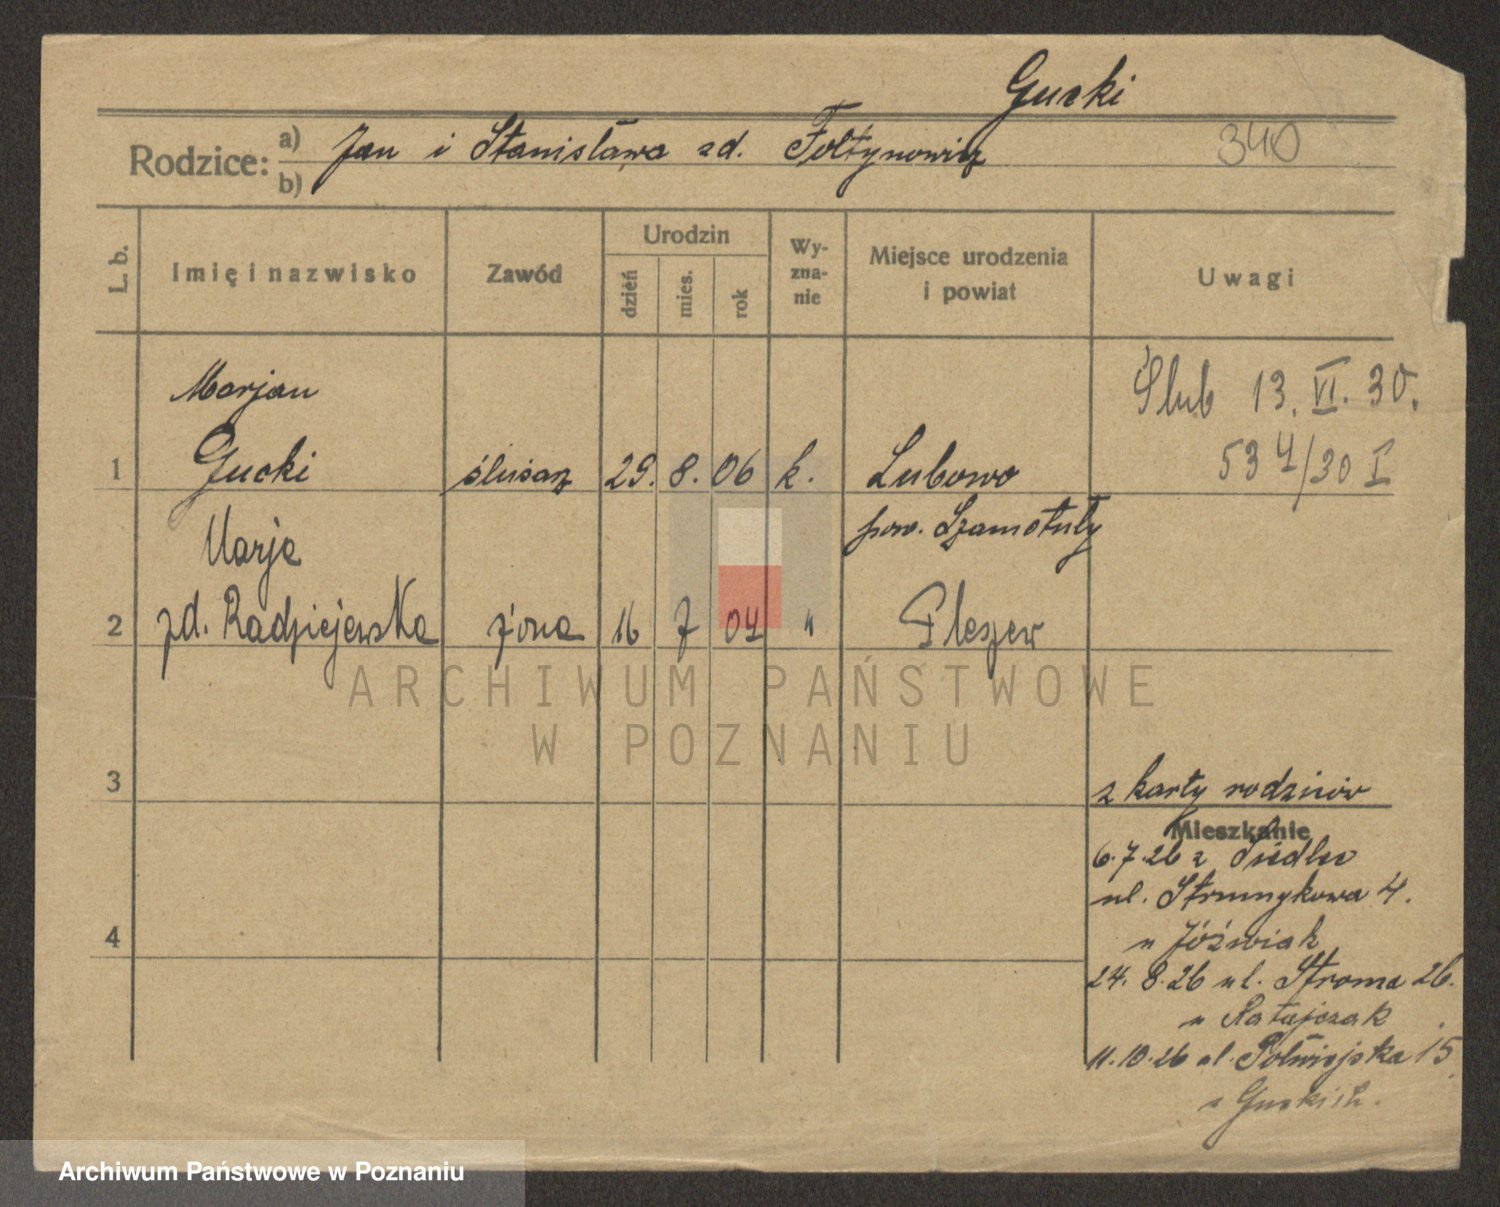 Gucki
Rodzice: a) Jan i Stanisława zd. Fołtynowicz 340
b)
L. b. Imię i nazwisko Zawód Urodzin dzień mies. rok Wyznanie Miejsce urodzenia i powiat Uwagi
Marjan Ślub 13. VI. 30.
1 Gucki ślusarz 29. 8. 06 k. Lubowo 534/30 I
pow. Szamotuły
Marja
2 zd. Radziejewska żona 16 7 04 " Pleszew
ARCHIWUM PAŃSTWOWE
W POZNANIU
3 z karty rodziców
Mieszkanie
6.7.26 z
ul. Strumykowa 4.
4 u Jóźwiak
24. 8. 26 ul. Stroma 26.
u Ratajczak
11.10.26 ul. Półwiejska 15
Guckich.
Archiwum Państwowe w Poznaniu